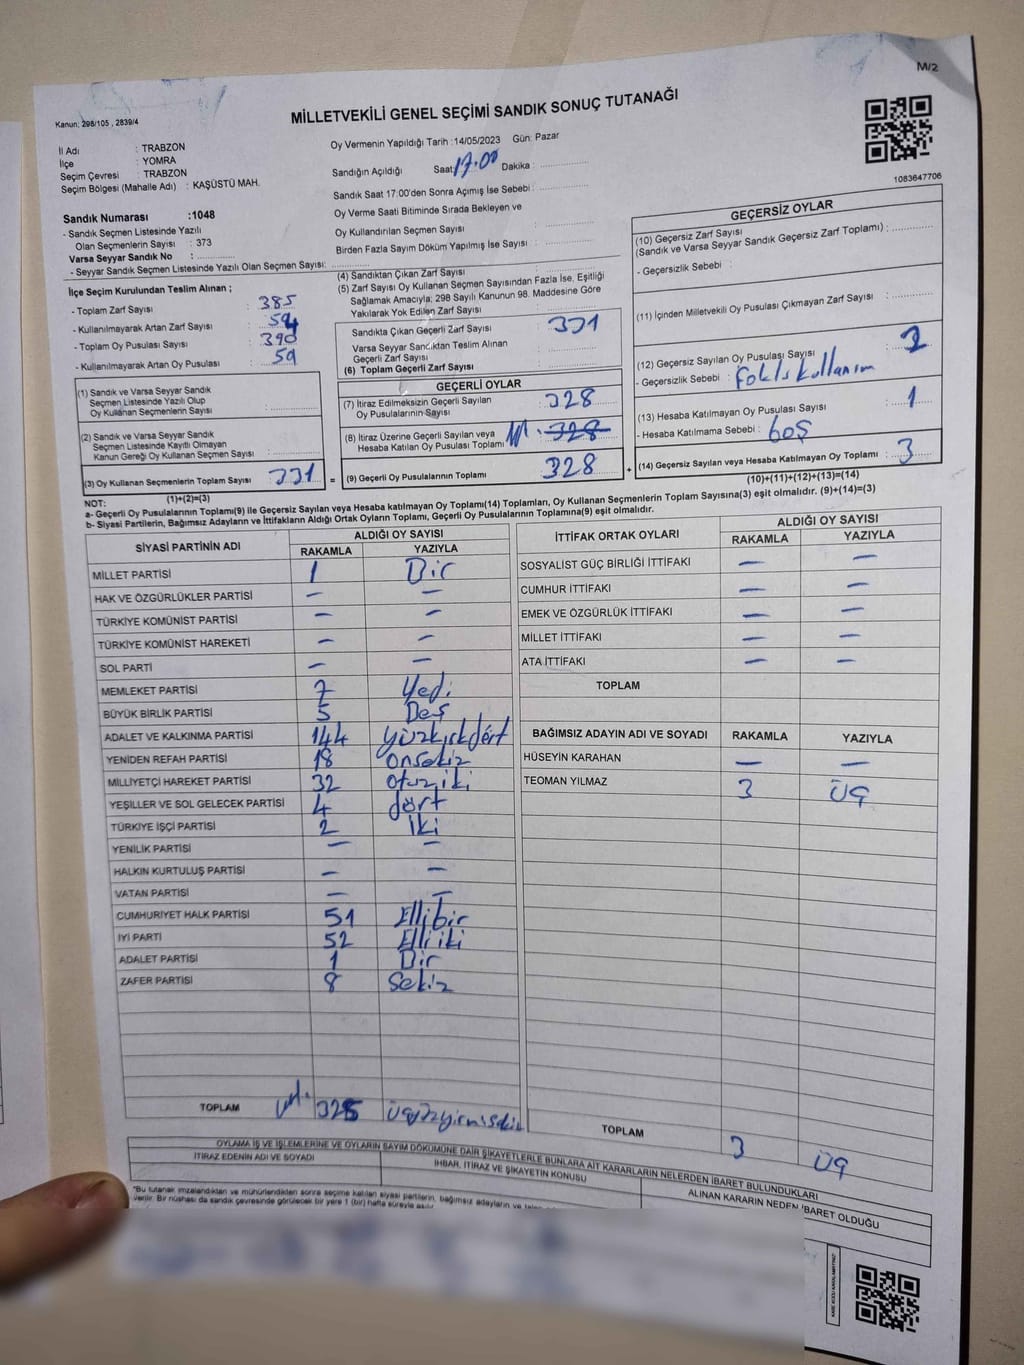 M/2
Kanun: 298/105 , 2839/4
MİLLETVEKİLİ GENEL SEÇİMİ SANDIK SONUÇ TUTANAĞI
İl Adı : TRABZON
İlçe : YOMRA
Seçim Çevresi : TRABZON
Seçim Bölgesi (Mahalle Adı) : KAŞÜSTÜ MAH.
Oy Vermenin Yapıldığı Tarih :14/05/2023 Gün: Pazar
Sandığın Açıldığı Saat: 17.00 Dakika :
Sandık Saat 17:00'den Sonra Açımış İse Sebebi :
Oy Verme Saati Bitiminde Sırada Bekleyen ve
Oy Kullandırılan Seçmen Sayısı :
Birden Fazla Sayım Döküm Yapılmış İse Sayısı :
1083647706
Sandık Numarası :1048
- Sandık Seçmen Listesinde Yazılı
Olan Seçmenlerin Sayısı : 373
Varsa Seyyar Sandık No :
- Seyyar Sandık Seçmen Listesinde Yazılı Olan Seçmen Sayısı:
İlçe Seçim Kurulundan Teslim Alınan ;
- Toplam Zarf Sayısı : 385
- Kullanılmayarak Artan Zarf Sayısı : 54
- Toplam Oy Pusulası Sayısı : 390
- Kullanılmayarak Artan Oy Pusulası : 59
(1) Sandık ve Varsa Seyyar Sandık
Seçmen Listesinde Yazılı Olup
Oy Kullanan Seçmenlerin Sayısı :
(2) Sandık ve Varsa Seyyar Sandık
Seçmen Listesinde Kayıtlı Olmayan
Kanun Gereği Oy Kullanan Seçmen Sayısı :
(3) Oy Kullanan Seçmenlerin Toplam Sayısı : 331
(1)+(2)=(3)
(4) Sandıktan Çıkan Zarf Sayısı :
(5) Zarf Sayısı Oy Kullanan Seçmen Sayısından Fazla İse, Eşitliği
Sağlamak Amacıyla; 298 Sayılı Kanunun 98. Maddesine Göre
Yakılarak Yok Edilen Zarf Sayısı :
Sandıkta Çıkan Geçerli Zarf Sayısı : 331
Varsa Seyyar Sandıktan Teslim Alınan
Geçerli Zarf Sayısı :
(6) Toplam Geçerli Zarf Sayısı :
GEÇERLİ OYLAR
(7) İtiraz Edilmeksizin Geçerli Sayılan
Oy Pusulalarının Sayısı : 328
(8) İtiraz Üzerine Geçerli Sayılan veya
Hesaba Katılan Oy Pusulaları Toplamı : 328
(9) Geçerli Oy Pusulalarının Toplamı : 328
GEÇERSİZ OYLAR
(10) Geçersiz Zarf Sayısı
(Sandık ve Varsa Seyyar Sandık Geçersiz Zarf Toplamı) :
- Geçersizlik Sebebi :
(11) İçinden Milletvekili Oy Pusulası Çıkmayan Zarf Sayısı :
(12) Geçersiz Sayılan Oy Pusulası Sayısı : 2
- Geçersizlik Sebebi :
(13) Hesaba Katılmayan Oy Pusulası Sayısı : 1
- Hesaba Katılmama Sebebi : boş
(14) Geçersiz Sayılan veya Hesaba Katılmayan Oy Toplamı : 3
(10)+(11)+(12)+(13)=(14)
NOT:
a- Geçerli Oy Pusulalarının Toplamı(9) ile Geçersiz Sayılan veya Hesaba Katılmayan Oy Toplamı(14) Toplamları, Oy Kullanan Seçmenlerin Toplam Sayısına(3) eşit olmalıdır. (9)+(14)=(3)
b- Siyasi Partilerin, Bağımsız Adayların ve İttifakların Aldığı Ortak Oyların Toplamı, Geçerli Oy Pusulalarının Toplamına(9) eşit olmalıdır.
SİYASİ PARTİNİN ADI ALDIĞI OY SAYISI
RAKAMLA YAZIYLA
MİLLET PARTİSİ 1 Bir
HAK VE ÖZGÜRLÜKLER PARTİSİ – –
TÜRKİYE KOMÜNİST PARTİSİ – –
TÜRKİYE KOMÜNİST HAREKETİ – –
SOL PARTİ – –
MEMLEKET PARTİSİ 7 Yedi
BÜYÜK BİRLİK PARTİSİ 5 Beş
ADALET VE KALKINMA PARTİSİ 144 yüzkırkdört
YENİDEN REFAH PARTİSİ 18 onsekiz
MİLLİYETÇİ HAREKET PARTİSİ 32 otuziki
YEŞİLLER VE SOL GELECEK PARTİSİ 4 dört
TÜRKİYE İŞÇİ PARTİSİ 2 İki
YENİLİK PARTİSİ – –
HALKIN KURTULUŞ PARTİSİ – –
VATAN PARTİSİ – –
CUMHURİYET HALK PARTİSİ 51 Ellibir
İYİ PARTİ 52 Elliiki
ADALET PARTİSİ 1 Bir
ZAFER PARTİSİ 8 Sekiz
TOPLAM 325
İTTİFAK ORTAK OYLARI ALDIĞI OY SAYISI
RAKAMLA YAZIYLA
SOSYALİST GÜÇ BİRLİĞİ İTTİFAKI – –
CUMHUR İTTİFAKI – –
EMEK VE ÖZGÜRLÜK İTTİFAKI – –
MİLLET İTTİFAKI – –
ATA İTTİFAKI – –
TOPLAM
BAĞIMSIZ ADAYIN ADI VE SOYADI RAKAMLA YAZIYLA
HÜSEYİN KARAHAN – –
TEOMAN YILMAZ 3 Üç
TOPLAM 3 Üç
OYLAMA İŞ VE İŞLEMLERİNE VE OYLARIN SAYIM DÖKÜMÜNE DAİR ŞİKAYETLERLE BUNLARA AİT KARARLARIN NELERDEN İBARET BULUNDUKLARI
İTİRAZ EDENİN ADI VE SOYADI
İHBAR, İTİRAZ VE ŞİKAYETİN KONUSU
ALINAN KARARIN NEDEN İBARET OLDUĞU
"Bu tutanak imzalandıktan ve mühürlendikten sonra seçime katılan siyasi partilerin, bağımsız adayların ve
verilir. Bir nüshası da sandık çevresinde görülecek bir yere 1 (bir) hafta süreyle asılır.